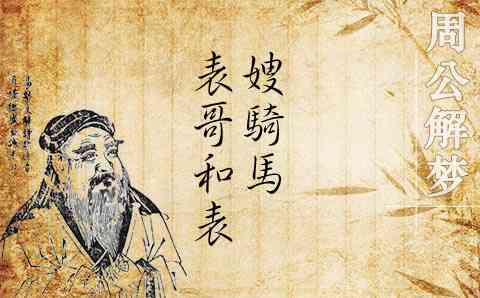 周公解梦
表哥和表
嫂騎馬